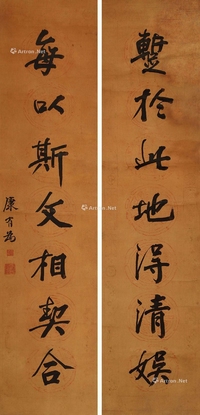 蹔於此地得清娛
每以斯文相契合
康有為